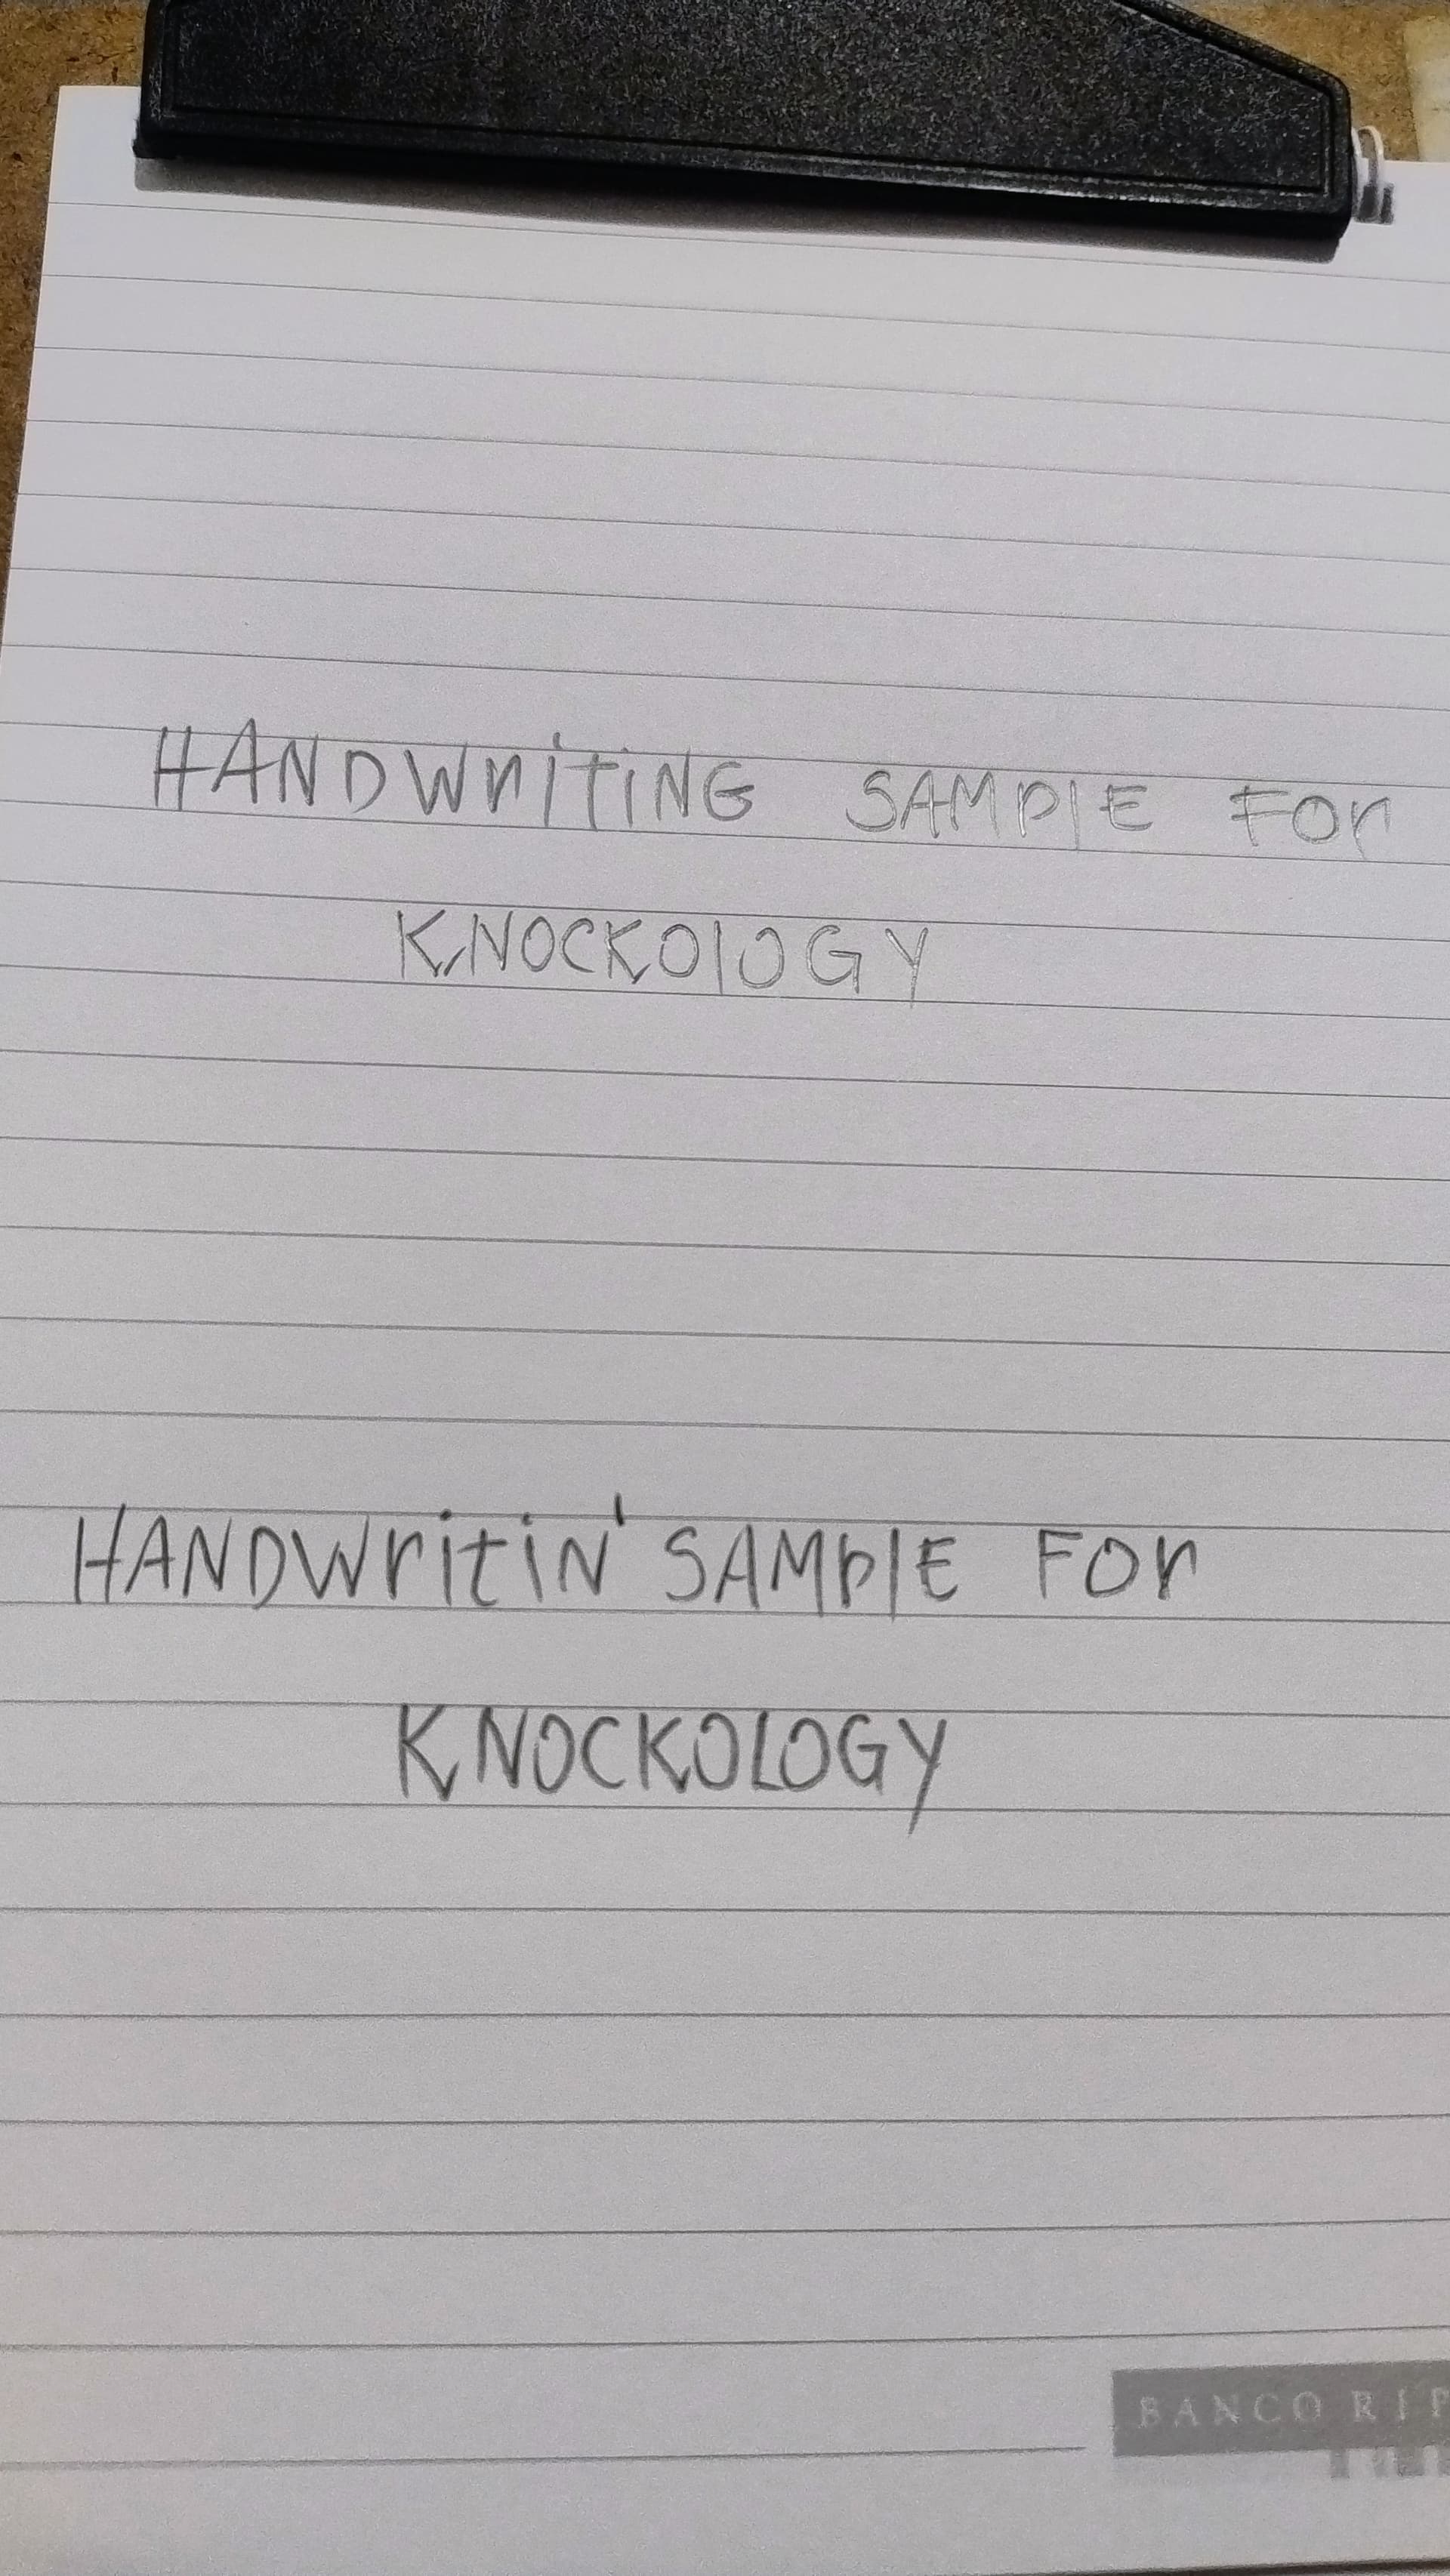 HANDWrITiNG SAMPlE FOr
KNOCKOlOGY
HANDWritiN' SAMplE FOr
KNOCKOLOGY
BANCO RIP